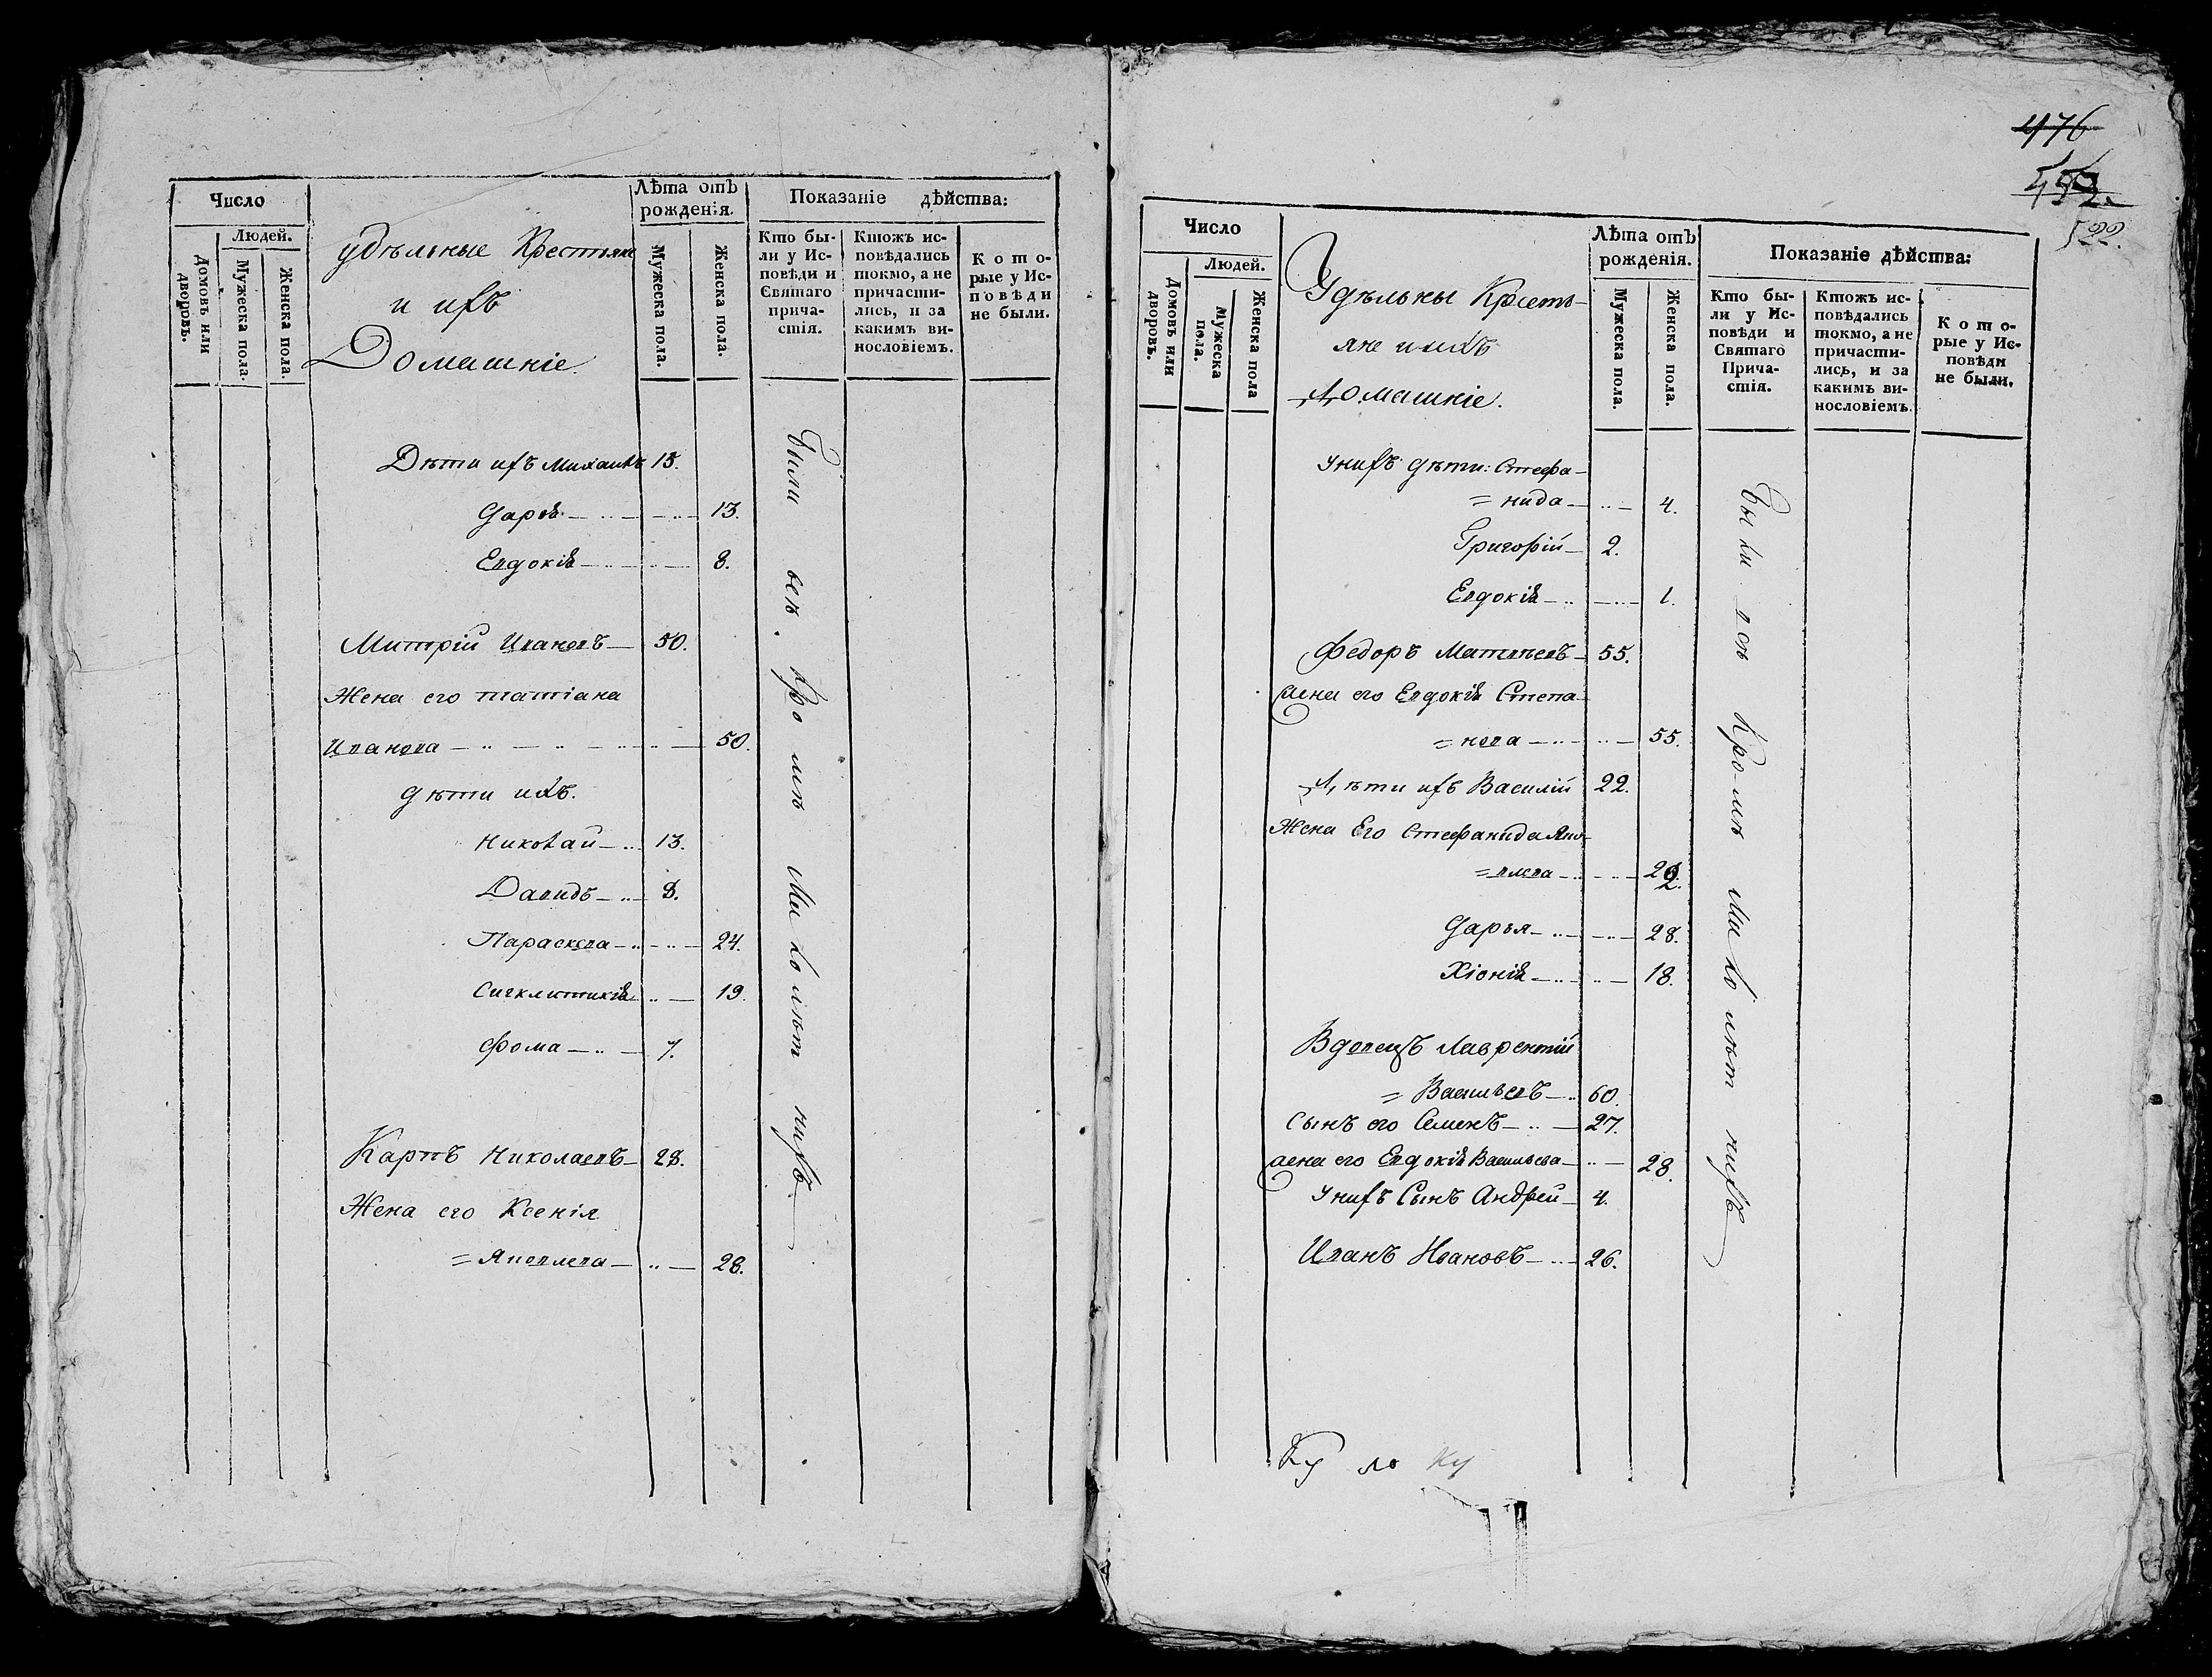 Число
Людей.
Домовъ или дворовъ.
Мужеска пола.
Женска пола.
удѣльные Крестьяне
и ихъ
Домашніе.
Лѣта отъ рожденія.
Мужеска пола.
Женска пола.
Показаніе дѣйства:
Кто бы-
ли у Ис-
повѣди и
Святаго
прича-
стія.
Ктожъ ис-
повѣдались
токмо, а не
причасти-
лись, и за
какимъ ви-
нословіемъ.
Кото-
рые у Ис-
повѣди
не были.
Дѣти ихъ Михаилъ 15.
Дарья 13.
Евдокія 8.
Митрій Ивановъ 50.
Жена его татіана
Иванова 50.
дѣти ихъ.
Николай 13.
Давидъ 8.
Параскева 24.
Сигклитикія 19.
Фома 7.
Карпъ Николаевъ 28.
Жена его Ксенія
= Яковлева 28.
были всѣ кромѣ Малолѣт нихъ
476
522.
Число
Людей.
Домовъ или дворовъ.
Мужеска пола.
Женска пола
Удѣльны Кресть-
яне и ихъ
Домашніе.
Лѣта отъ рожденія.
Мужеска пола.
Женска пола.
Показаніе дѣйства:
Кто бы-
ли у Ис-
повѣди и
Святаго
Прича-
стія.
Ктожъ ис-
повѣдались
токмо, а не
причасти-
лись, и за
какимъ ви-
нословіемъ.
Кото-
рые у Ис-
повѣди
не были.
У нихъ дѣти: Стефа-
= нида 4.
Григорій 2.
Евдокія 1.
Федоръ Матвѣевъ 55.
жена его Евдокія Степа-
= нова 55.
Дѣти ихъ Василій 22.
Жена Его Стефанида Яко-
= влева
Дарья 28.
Хіонія 18.
Вдовецъ Лаврентій
= Васильевъ 60.
Сынъ его Семенъ 27.
жена его Евдокія Васильева 28.
У нихъ Сынъ Андрей 4.
Иванъ Ивановъ 26.
Были всѣ Кромѣ Малолѣт нихъ